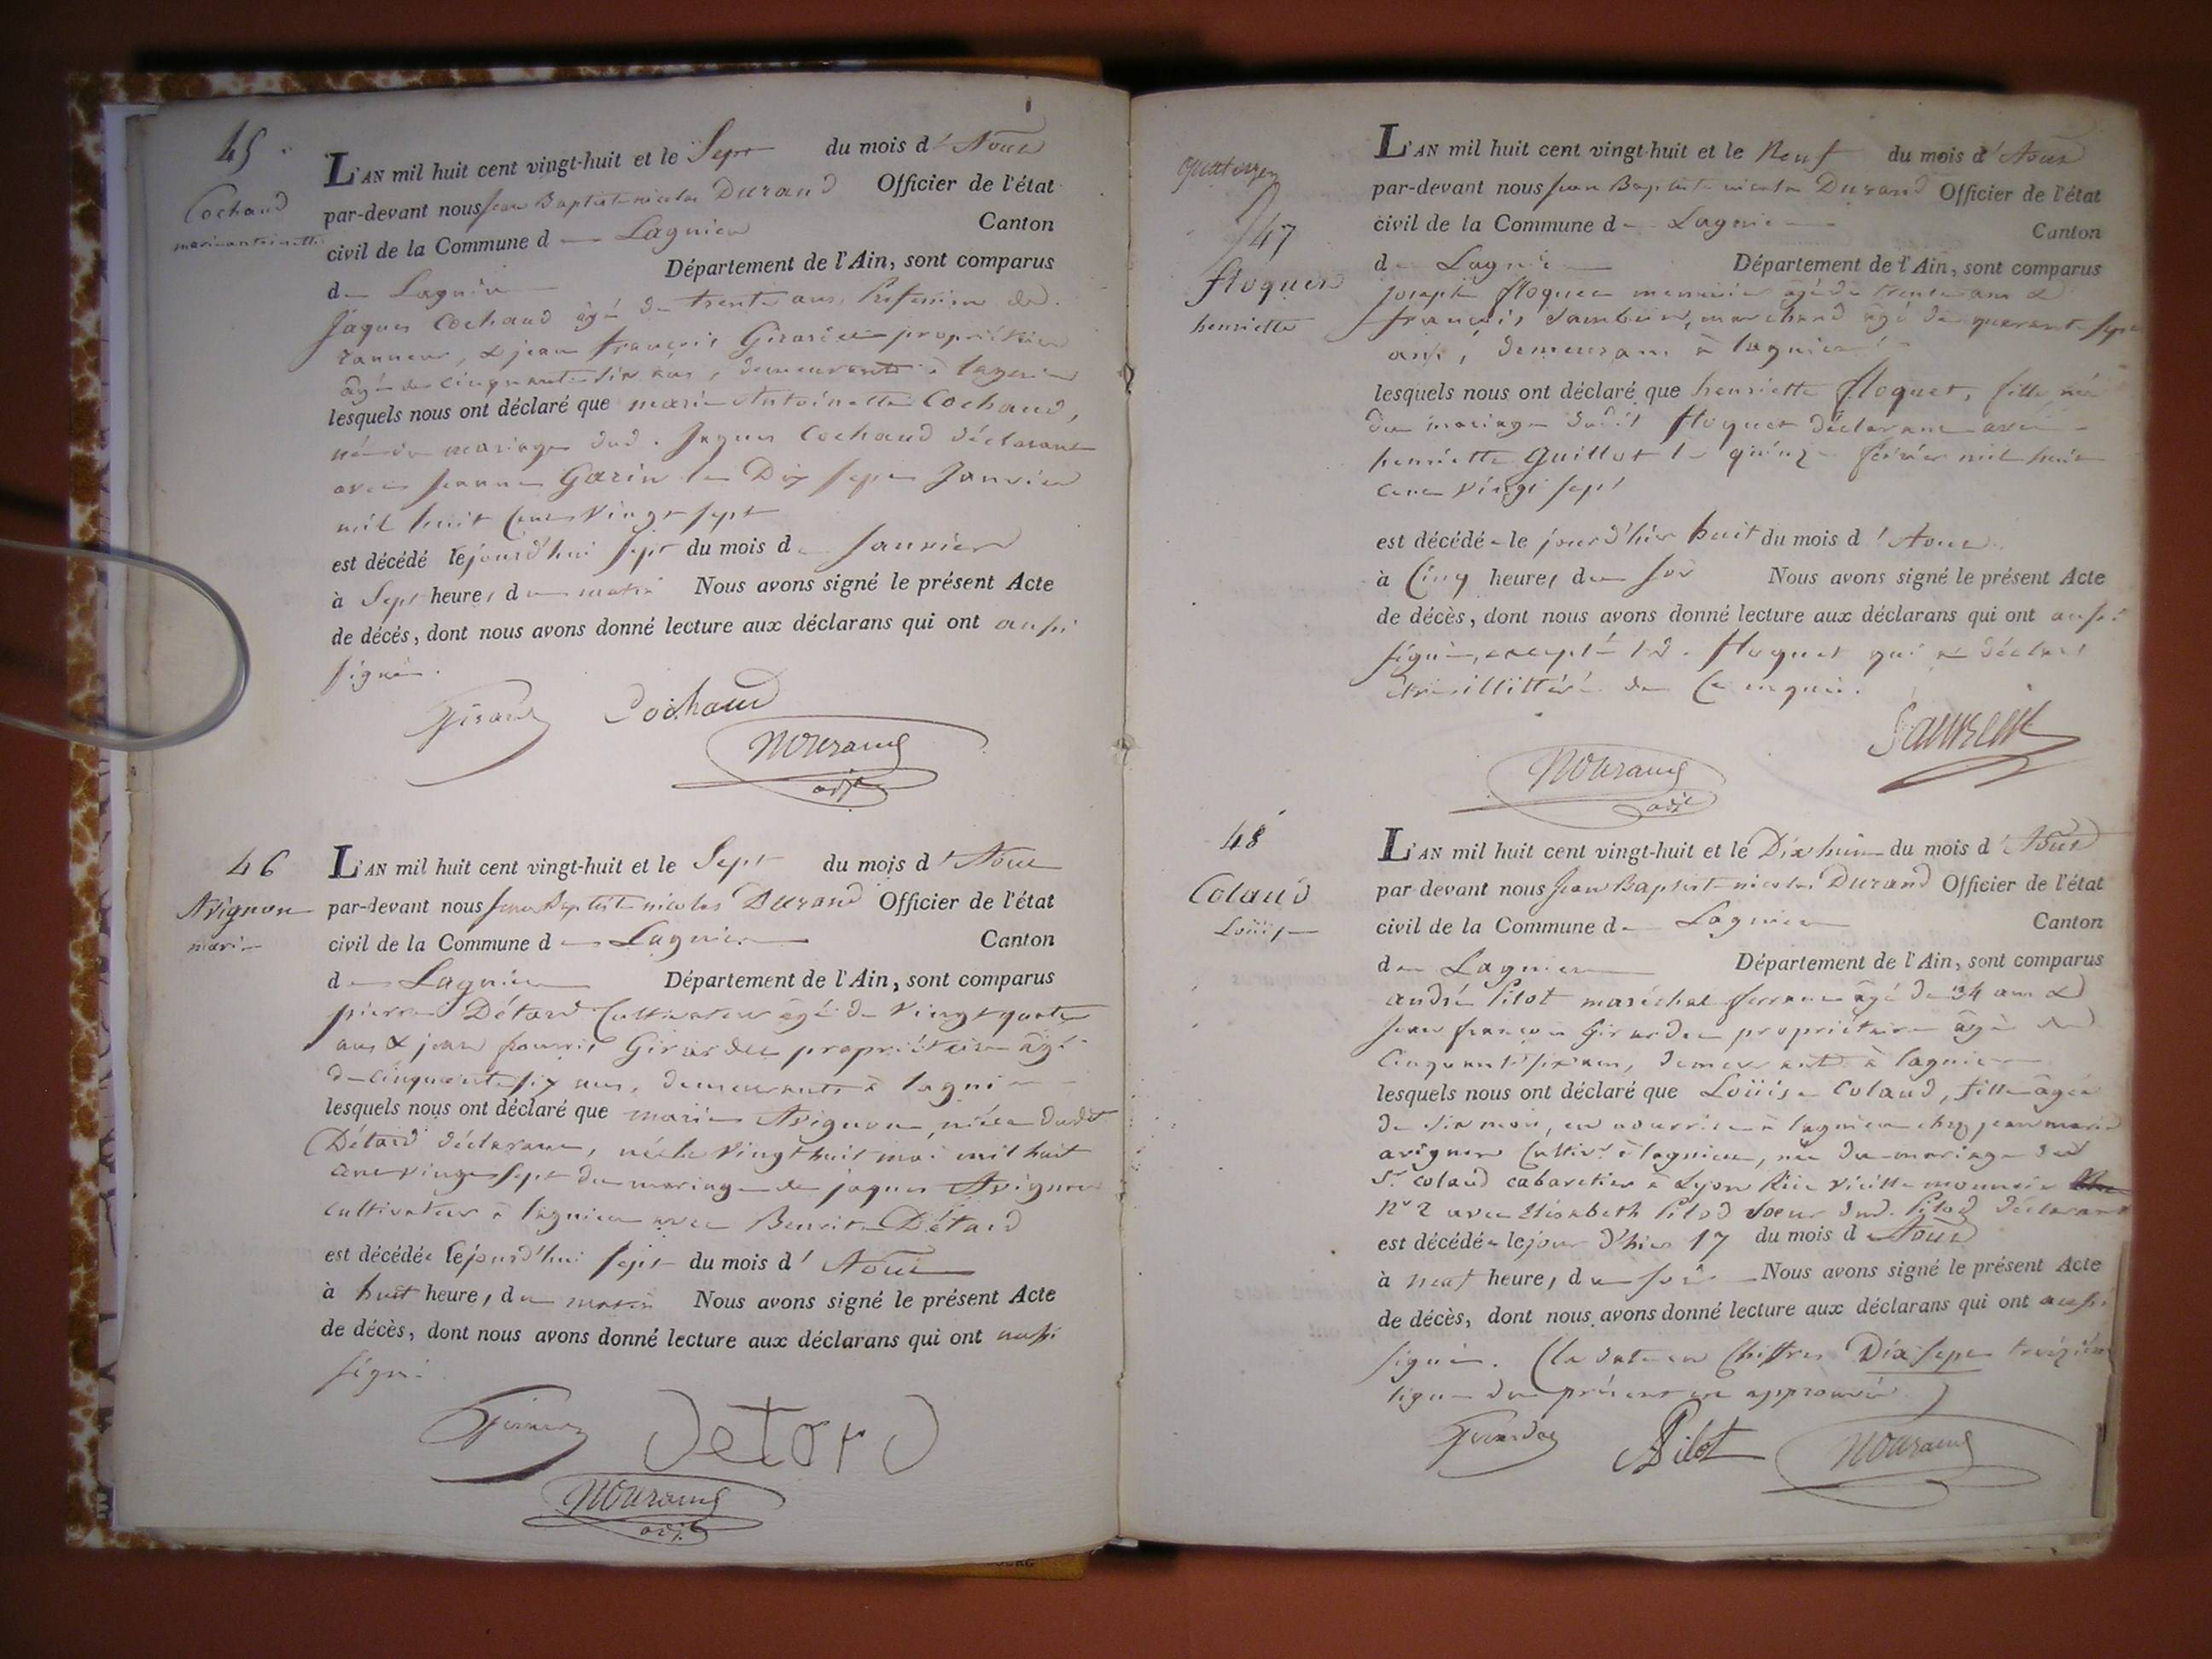 45
Cochaud
marie antoinette
L'AN mil huit cent vingt-huit et le Sept du mois d'Aout
par-devant nous Jean Baptiste nicolas Durand Officier de l'état
civil de la Commune de Lagnieu Canton
de Lagnieu Département de l'Ain, sont comparus
Jaques Cochaud âgé de trente ans, Profession de
tanneur, & jean françois Girardet propriétaire
âgé de cinquante six ans, demeurants à lagnieu
lesquels nous ont déclaré que marie Antoinette Cochaud,
née du mariage dud. Jaques Cochaud déclarant
avec Jeanne Garin le Dix sept Janvier
mil huit Cent Vingt sept
est décédé le jourd'hui sept du mois de Janvier
à Sept heures du matin Nous avons signé le présent Acte
de décès, dont nous avons donné lecture aux déclarans qui ont aussi
signé.
Girardet Cochaud
NDurand
adjt
46
Avignon
marie
L'AN mil huit cent vingt-huit et le Sept du mois d'Aout
par-devant nous Jean Baptiste nicolas Durand Officier de l'état
civil de la Commune de Lagnieu Canton
de Lagnieu Département de l'Ain, sont comparus
pierre Détard Cultivateur âgé de Vingt quatre
ans & jean francois Girardet propriétaire âgé
de cinquante six ans, demeurants à lagnieu
lesquels nous ont déclaré que marie Avignon, nièce dudit
Détard déclarant, née le Vingt huit mai mil huit
cent vingt sept du mariage de jaques Avignon
cultivateur à lagnieu avec Benoite Détard
est décédée le jourd'hui sept du mois d'Aout
à huit heures du matin Nous avons signé le présent Acte
de décès, dont nous avons donné lecture aux déclarans qui ont aussi
signé
Girardet Detard
NDurand
adjt
47
floquet
henriette
L'AN mil huit cent vingt-huit et le Neuf du mois d'Aout
par-devant nous Jean Baptiste nicolas Durand Officier de l'état
civil de la Commune de Lagnieu Canton
de Lagnieu Département de l'Ain, sont comparus
Joseph floquet menuisier âgé de trente ans &
françois, marchand âgé de quarante sept
ans, demeurans à lagnieu
lesquels nous ont déclaré que henriette floquet, fille née
du mariage dudit floquet déclarant avec
henriette Guillot le quinze février mil huit
cent vingt sept
est décédée le jour d'hier huit du mois d'Aout
à Cinq heures du soir Nous avons signé le présent Acte
de décès, dont nous avons donné lecture aux déclarans qui ont aussi
signé, excepté led. floquet qui a déclaré
être illittéré de ce enquis.
NDurand
adjt
48
Colaud
Louise
L'AN mil huit cent vingt-huit et le Dix huit du mois d'Aout
par-devant nous Jean Baptiste nicolas Durand Officier de l'état
civil de la Commune de Lagnieu Canton
de Lagnieu Département de l'Ain, sont comparus
andré Pilot maréchal ferrant âgé de 34 ans &
Jean françois Girardet propriétaire âgé de
Cinquante six ans, demeurants à lagnieu
lesquels nous ont déclaré que Louise Colaud, fille âgée
de six mois, en nourrice à lagnieu chez jean marie
avignon Cultivr à lagnieu, née du mariage de
Sr. Colaud cabaretier à Lyon Rue vieille monnoie
No 2 avec Elisabeth Pilod soeur dud. Pilod déclarant
est décédée le jour d'hier 17 du mois d'Aout
à neuf heures du soir Nous avons signé le présent Acte
de décès, dont nous avons donné lecture aux déclarans qui ont aussi
signé. (la date en Chiffres Dix sept treizième
ligne du présent est approuvée)
Girardet APilot NDurand